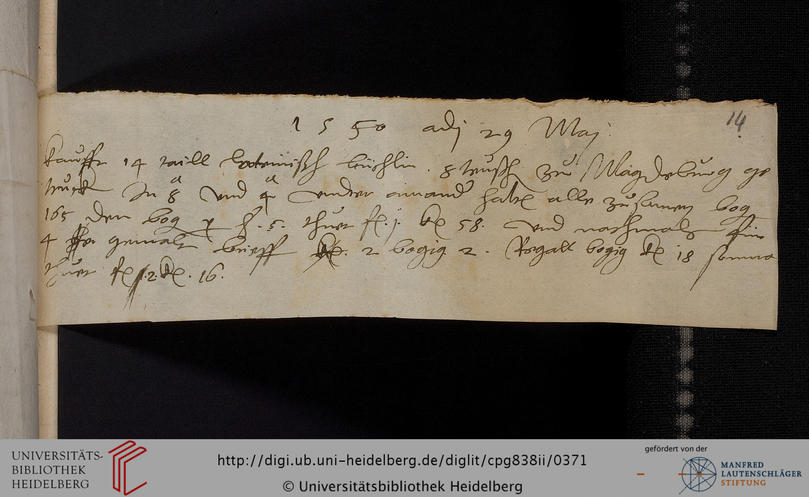 1550 adj 29 Maj
14
kaufft 14 taill lateinisch biechlin . 8 teusch zu Magdeburg ge
truckt In 8 und 4 under ainand habe alle zusamen bog
165 den bog 5 thuet fl j 58 und nochmals fur
4 gemalt brieff 2 bogig 2 . Regall bogig 18 somma
thuet fl 2 16
UNIVERSITÄTS-
BIBLIOTHEK
HEIDELBERG
http://digi.ub.uni-heidelberg.de/diglit/cpg838ii/0371
© Universitätsbibliothek Heidelberg
gefördert von der
MANFRED
LAUTENSCHLÄGER
STIFTUNG